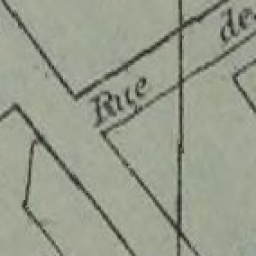 Rue de